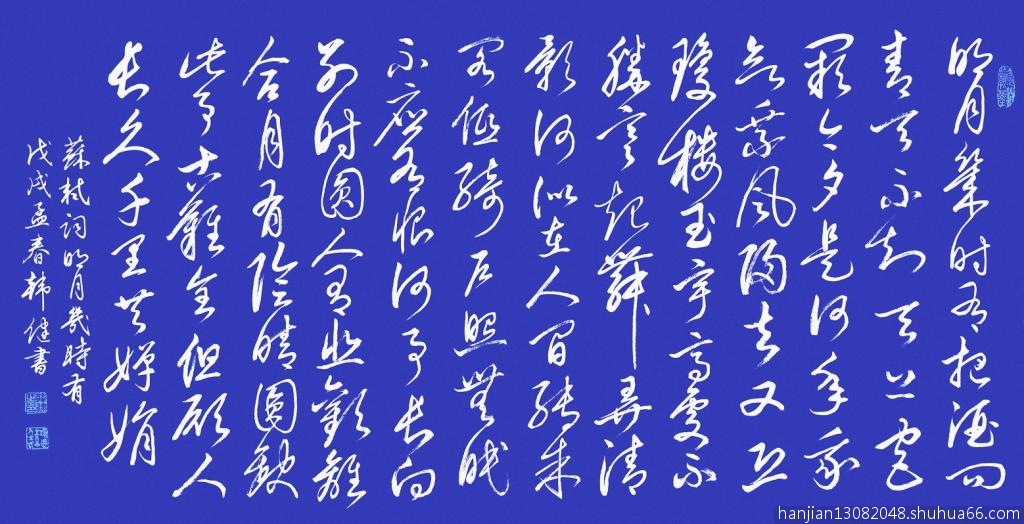 明月幾時有把酒問
青天不知天上宮
闕今夕是何年我
欲乘風歸去又恐
瓊樓玉宇高處不
勝寒起舞弄清
影何似在人間轉朱
閣低綺戶照無眠
不應有恨何事長向
別時圓人有悲歡離
合月有陰晴圓缺
此事古難全但願人
長久千里共嬋娟
蘇軾詞明月幾時有
戊戌孟春韓健書
hanjian13082048.shuhua66.com